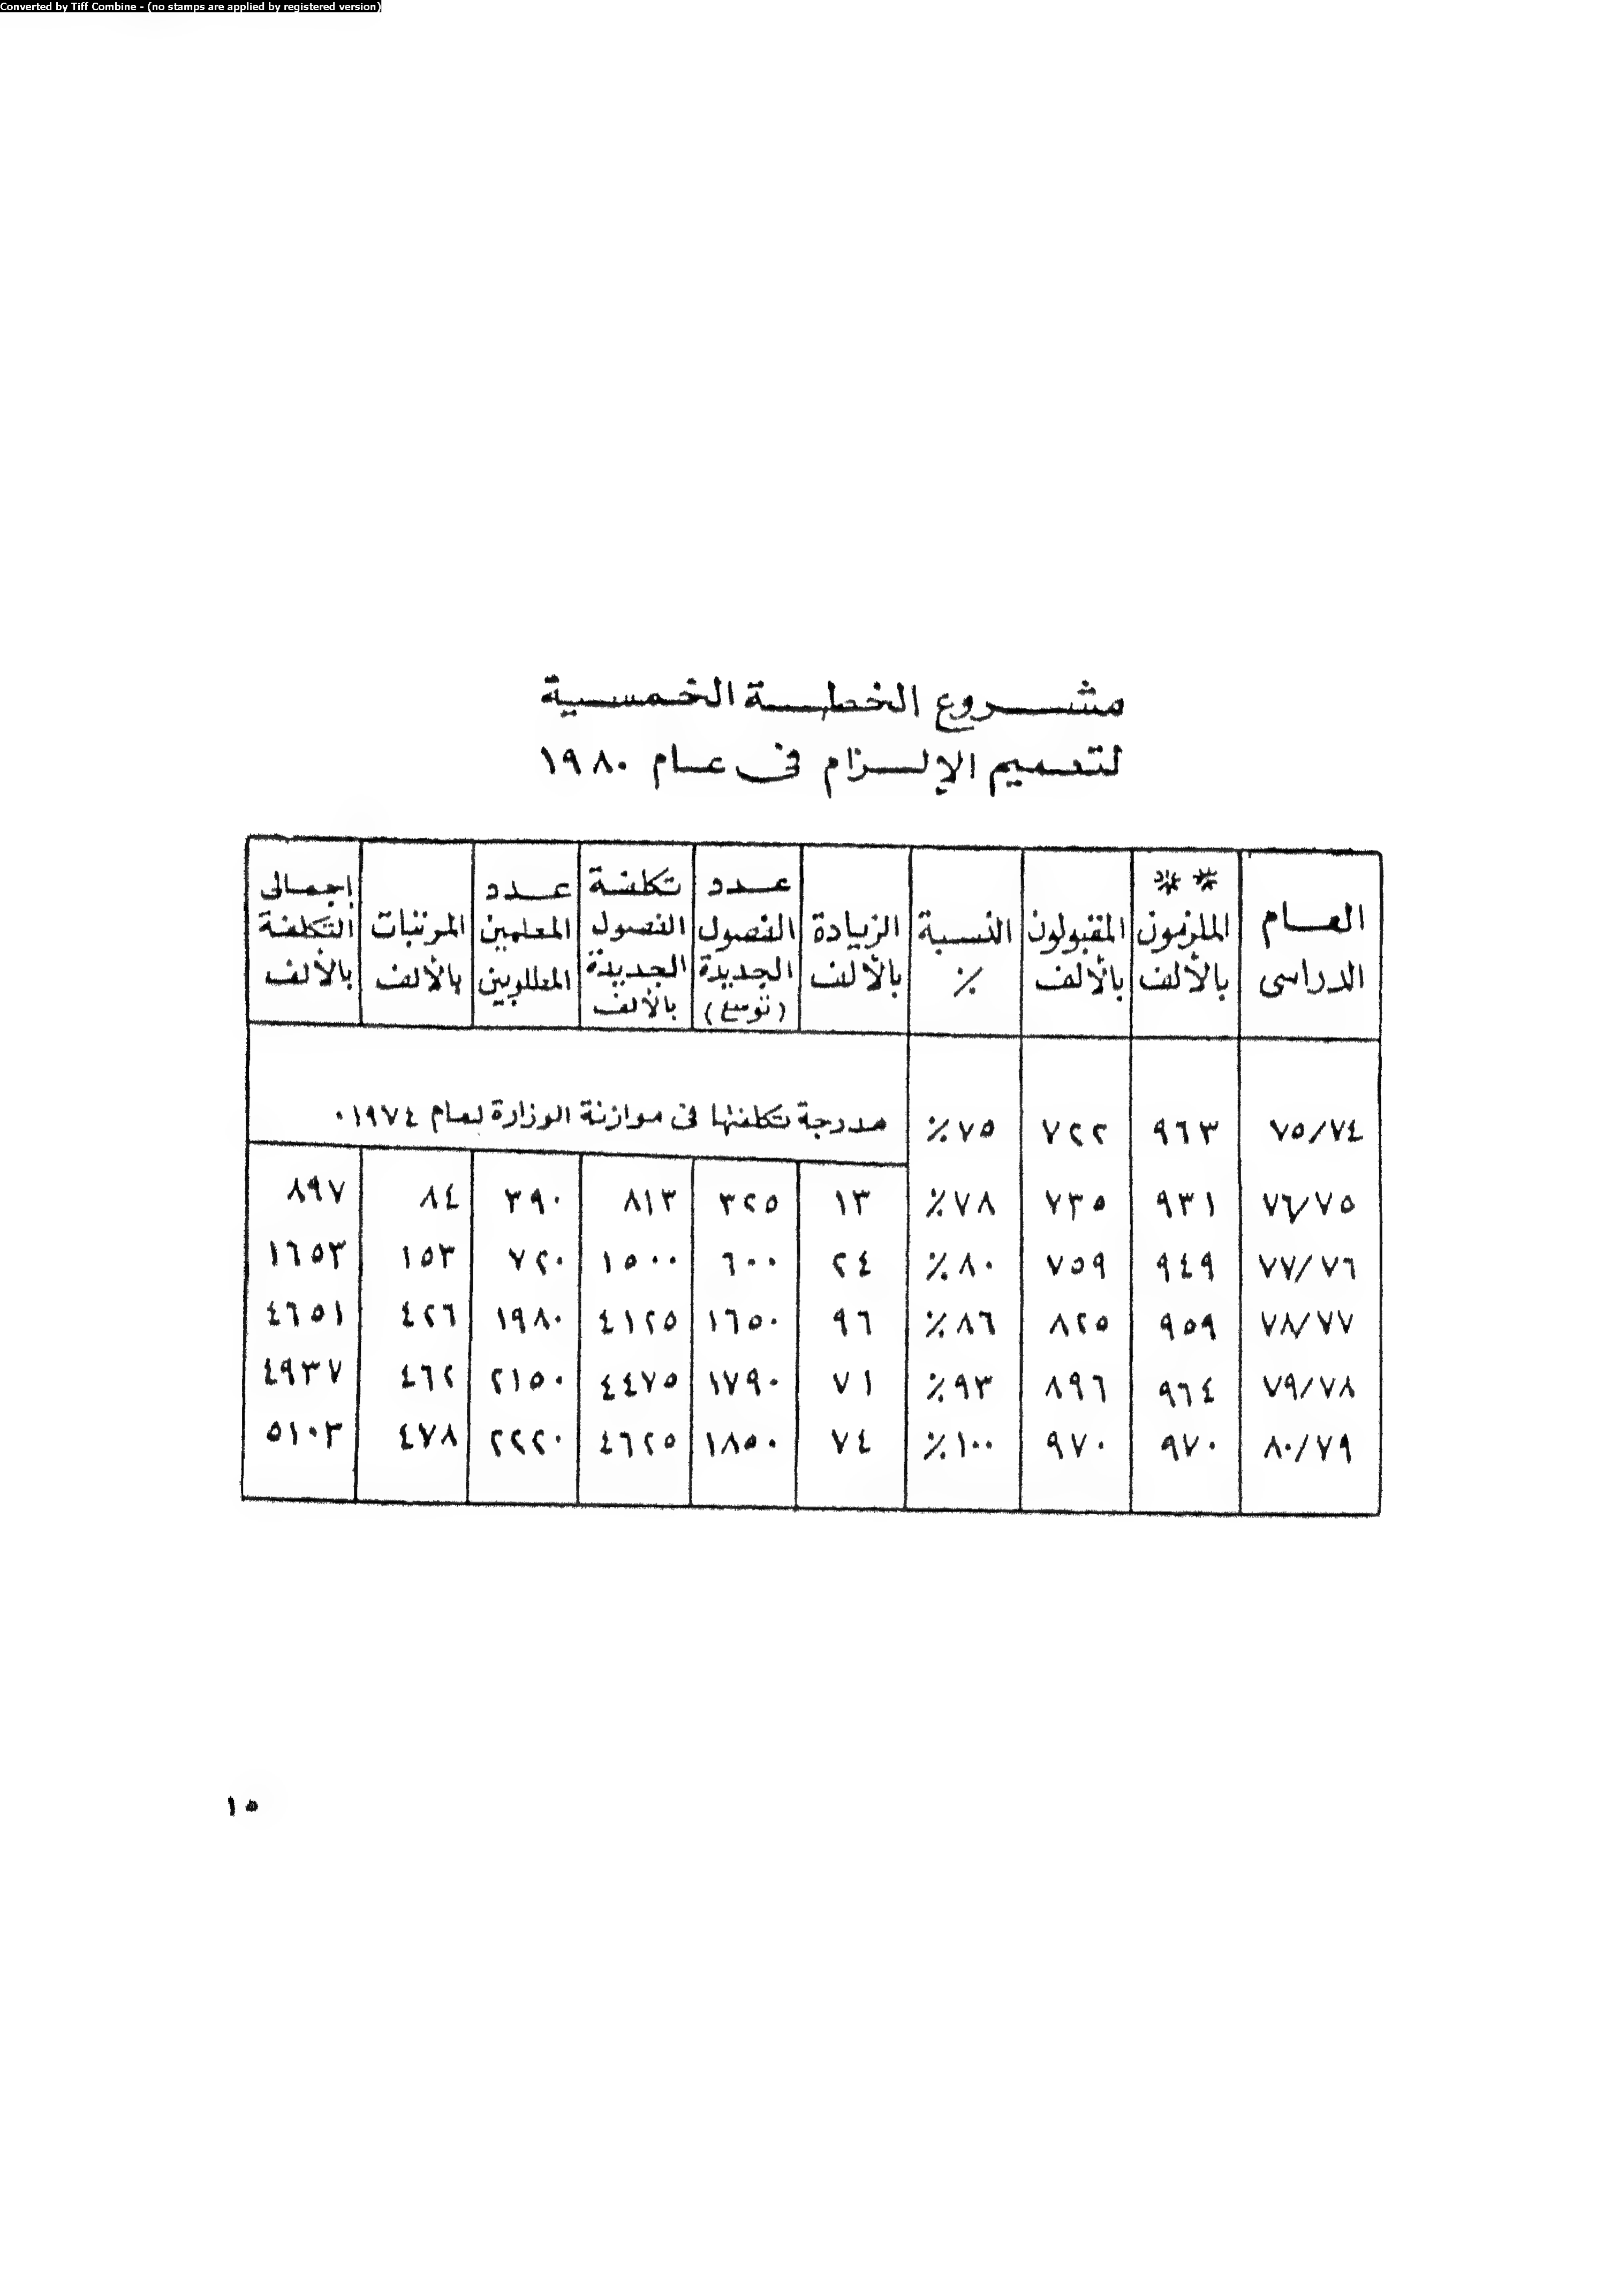 Converted by Tiff Combine - (no stamps are applied by registered version)
مشروع الخطة الخمسية
لتعميم الإلزام فى عام ١٩٨٠
العام الدراسى | ** الملزمون بالألف | المقبولون بالألف | النسبة ٪ | الزيادة بالألف | عدد الفصول الجديدة (توسع) | تكلفة الفصول الجديدة بالألف | عدد المعلمين المطلوبين | المرتبات بالألف | إجمالى التكلفة بالألف
٧٥/٧٤ | ٩٦٣ | ٧٢٢ | ٧٥٪ | مدرجة تكلفتها فى موازنة الوزارة لعام ١٩٧٤.
٧٦/٧٥ | ٩٣١ | ٧٣٥ | ٧٨٪ | ١٣ | ٣٢٥ | ٨١٣ | ٣٩٠ | ٨٤ | ٨٩٧
٧٧/٧٦ | ٩٤٩ | ٧٥٩ | ٨٠٪ | ٢٤ | ٦٠٠ | ١٥٠٠ | ٧٢٠ | ١٥٣ | ١٦٥٣
٧٨/٧٧ | ٩٥٩ | ٨٢٥ | ٨٦٪ | ٩٦ | ١٦٥٠ | ٤١٢٥ | ١٩٨٠ | ٤٢٦ | ٤٦٥١
٧٩/٧٨ | ٩٦٤ | ٨٩٦ | ٩٣٪ | ٧١ | ١٧٩٠ | ٤٤٧٥ | ٢١٥٠ | ٤٦٢ | ٤٩٣٧
٨٠/٧٩ | ٩٧٠ | ٩٧٠ | ١٠٠٪ | ٧٤ | ١٨٥٠ | ٤٦٢٥ | ٢٢٢٠ | ٤٧٨ | ٥١٠٣
١٥